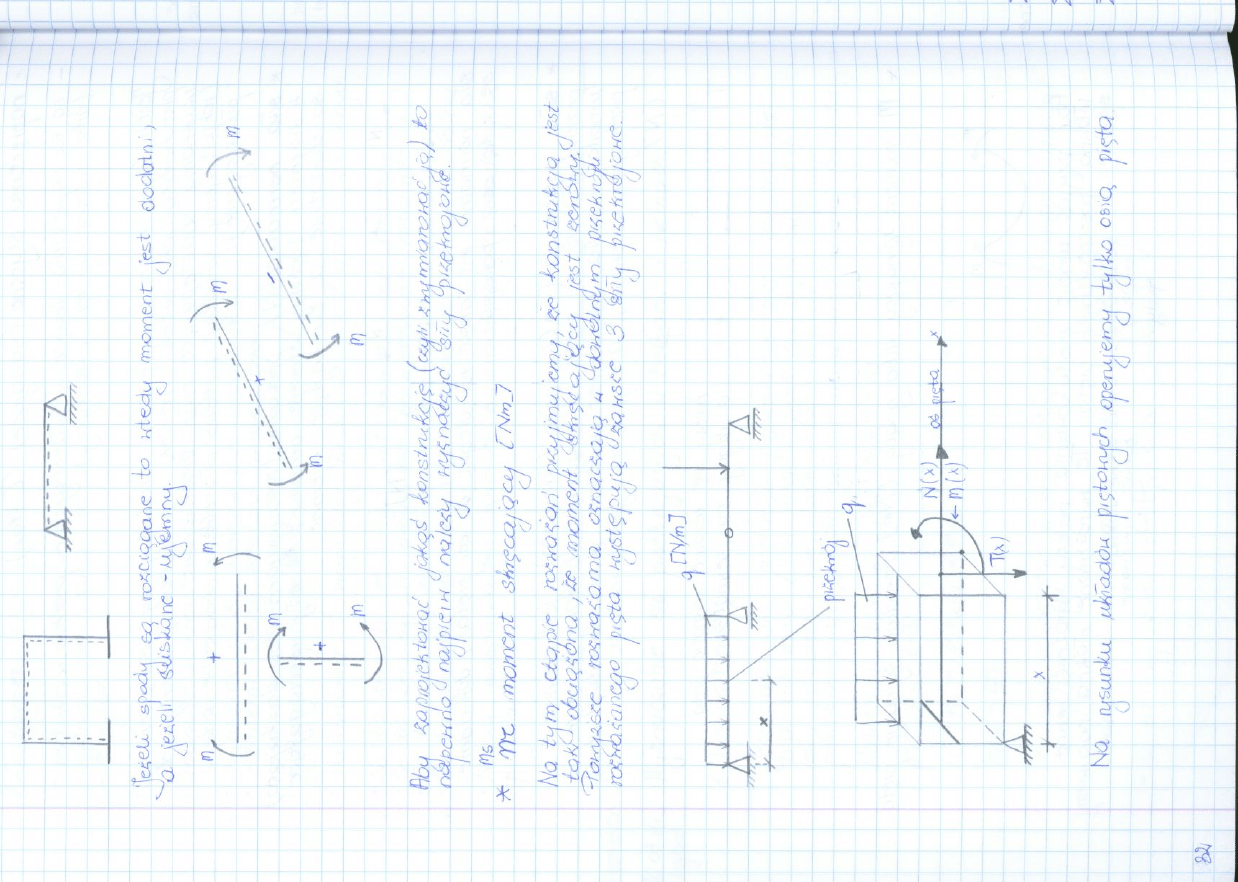 Jeżeli spady są rozciągane to wtedy moment jest dodatni,
a jeżeli ściskane - ujemny.
M
+
M
M
+
M
M
+
M
M
-
M
Aby zaprojektować jakąś konstrukcję (czyli zwymiarować ją) to
najpewno najpierw należy wyznaczyć siły przekrojowe.
Ms
* moment skręcający [Nm]
Na tym etapie rozważań przyjmujemy, że konstrukcja jest
tak obciążona, że moment skręcający jest zerowy.
Powyższe rozważania oznaczają w dowolnym przekroju
rozważanego pręta występują zawsze 3 siły przekrojowe.
q [N/m]
x
przekrój
q
N(x)
M(x)
T(x)
oś pręta
x
x
Na rysunku układów prętowych operujemy tylko osią pręta.
32